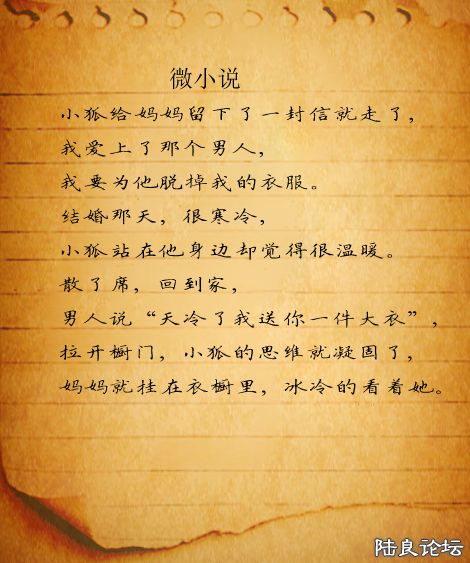 微小说
小狐给妈妈留下了一封信就走了，
我爱上了那个男人，
我要为他脱掉我的衣服。
结婚那天，很寒冷，
小狐站在他身边却觉得很温暖。
散了席，回到家，
男人说“天冷了我送你一件大衣”，
拉开橱门，小狐的思维就凝固了，
妈妈就挂在衣橱里，冰冷的看着她。
陆良论坛